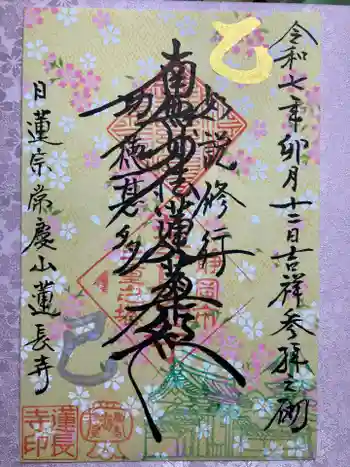 乙
令和七年卯月十二日吉祥参拝之砌
如説修行
南無妙法蓮華経
功徳甚多
日蓮宗常慶山蓮長寺
巳
蓮長
寺印